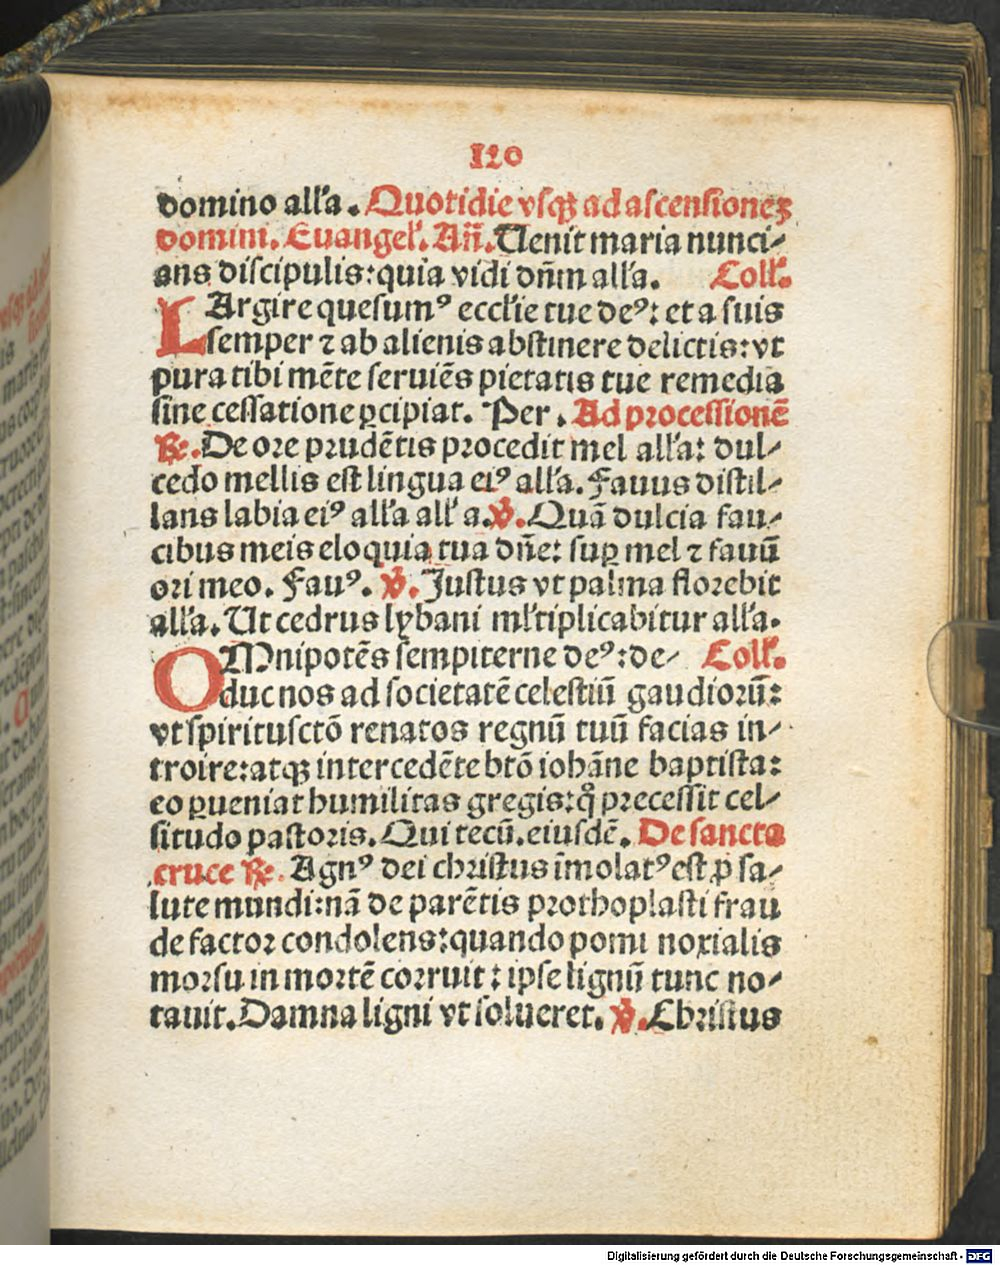 120
domino all'a. Quotidie vsqꝫ ad ascensioneꝫ
domini. Euangel'. Añ. Uenit maria nunci⸗
ans discipulis: quia vidi dñm all'a. Coll'.
LArgire quesumꝰ eccl'ie tue deꝰ: et a suis
semper ⁊ ab alienis abstinere delictis: vt
pura tibi mēte seruiēs pietatis tue remedia
sine cessatione ꝑcipiat. Per. Ad processionē
℟. De ore prudētis procedit mel all'a: dul⸗
cedo mellis est lingua eiꝰ all'a. Fauus distil⸗
lans labia eiꝰ all'a all'a. ℣. Quā dulcia fau⸗
cibus meis eloquia tua dñe: suꝑ mel ⁊ fauū
ori meo. Fauꝰ. ℣. Justus vt palma florebit
all'a. Ut cedrus lybani ml'tiplicabitur all'a.
OMnipotēs sempiterne deꝰ: de⸗ Coll'.
duc nos ad societatē celestiū gaudiorū:
vt spiritusctō renatos regnū tuū facias in⸗
troire: atqꝫ intercedēte btō iohāne baptista:
eo ꝑueniat humilitas gregis: q̊ precessit cel⸗
situdo pastoris. Qui tecū. eiusdē. De sancta
cruce ℟. Agnꝰ dei christus īmolatꝰ est ꝓ sa⸗
lute mundi: nā de parētis prothoplasti frau
de factor condolens: quando pomi noxialis
morsu in mortē corruit: ipse lignū tunc no⸗
tauit. Damna ligni vt solueret. ℣. Christus
Digitalisierung gefördert durch die Deutsche Forschungsgemeinschaft - DFG